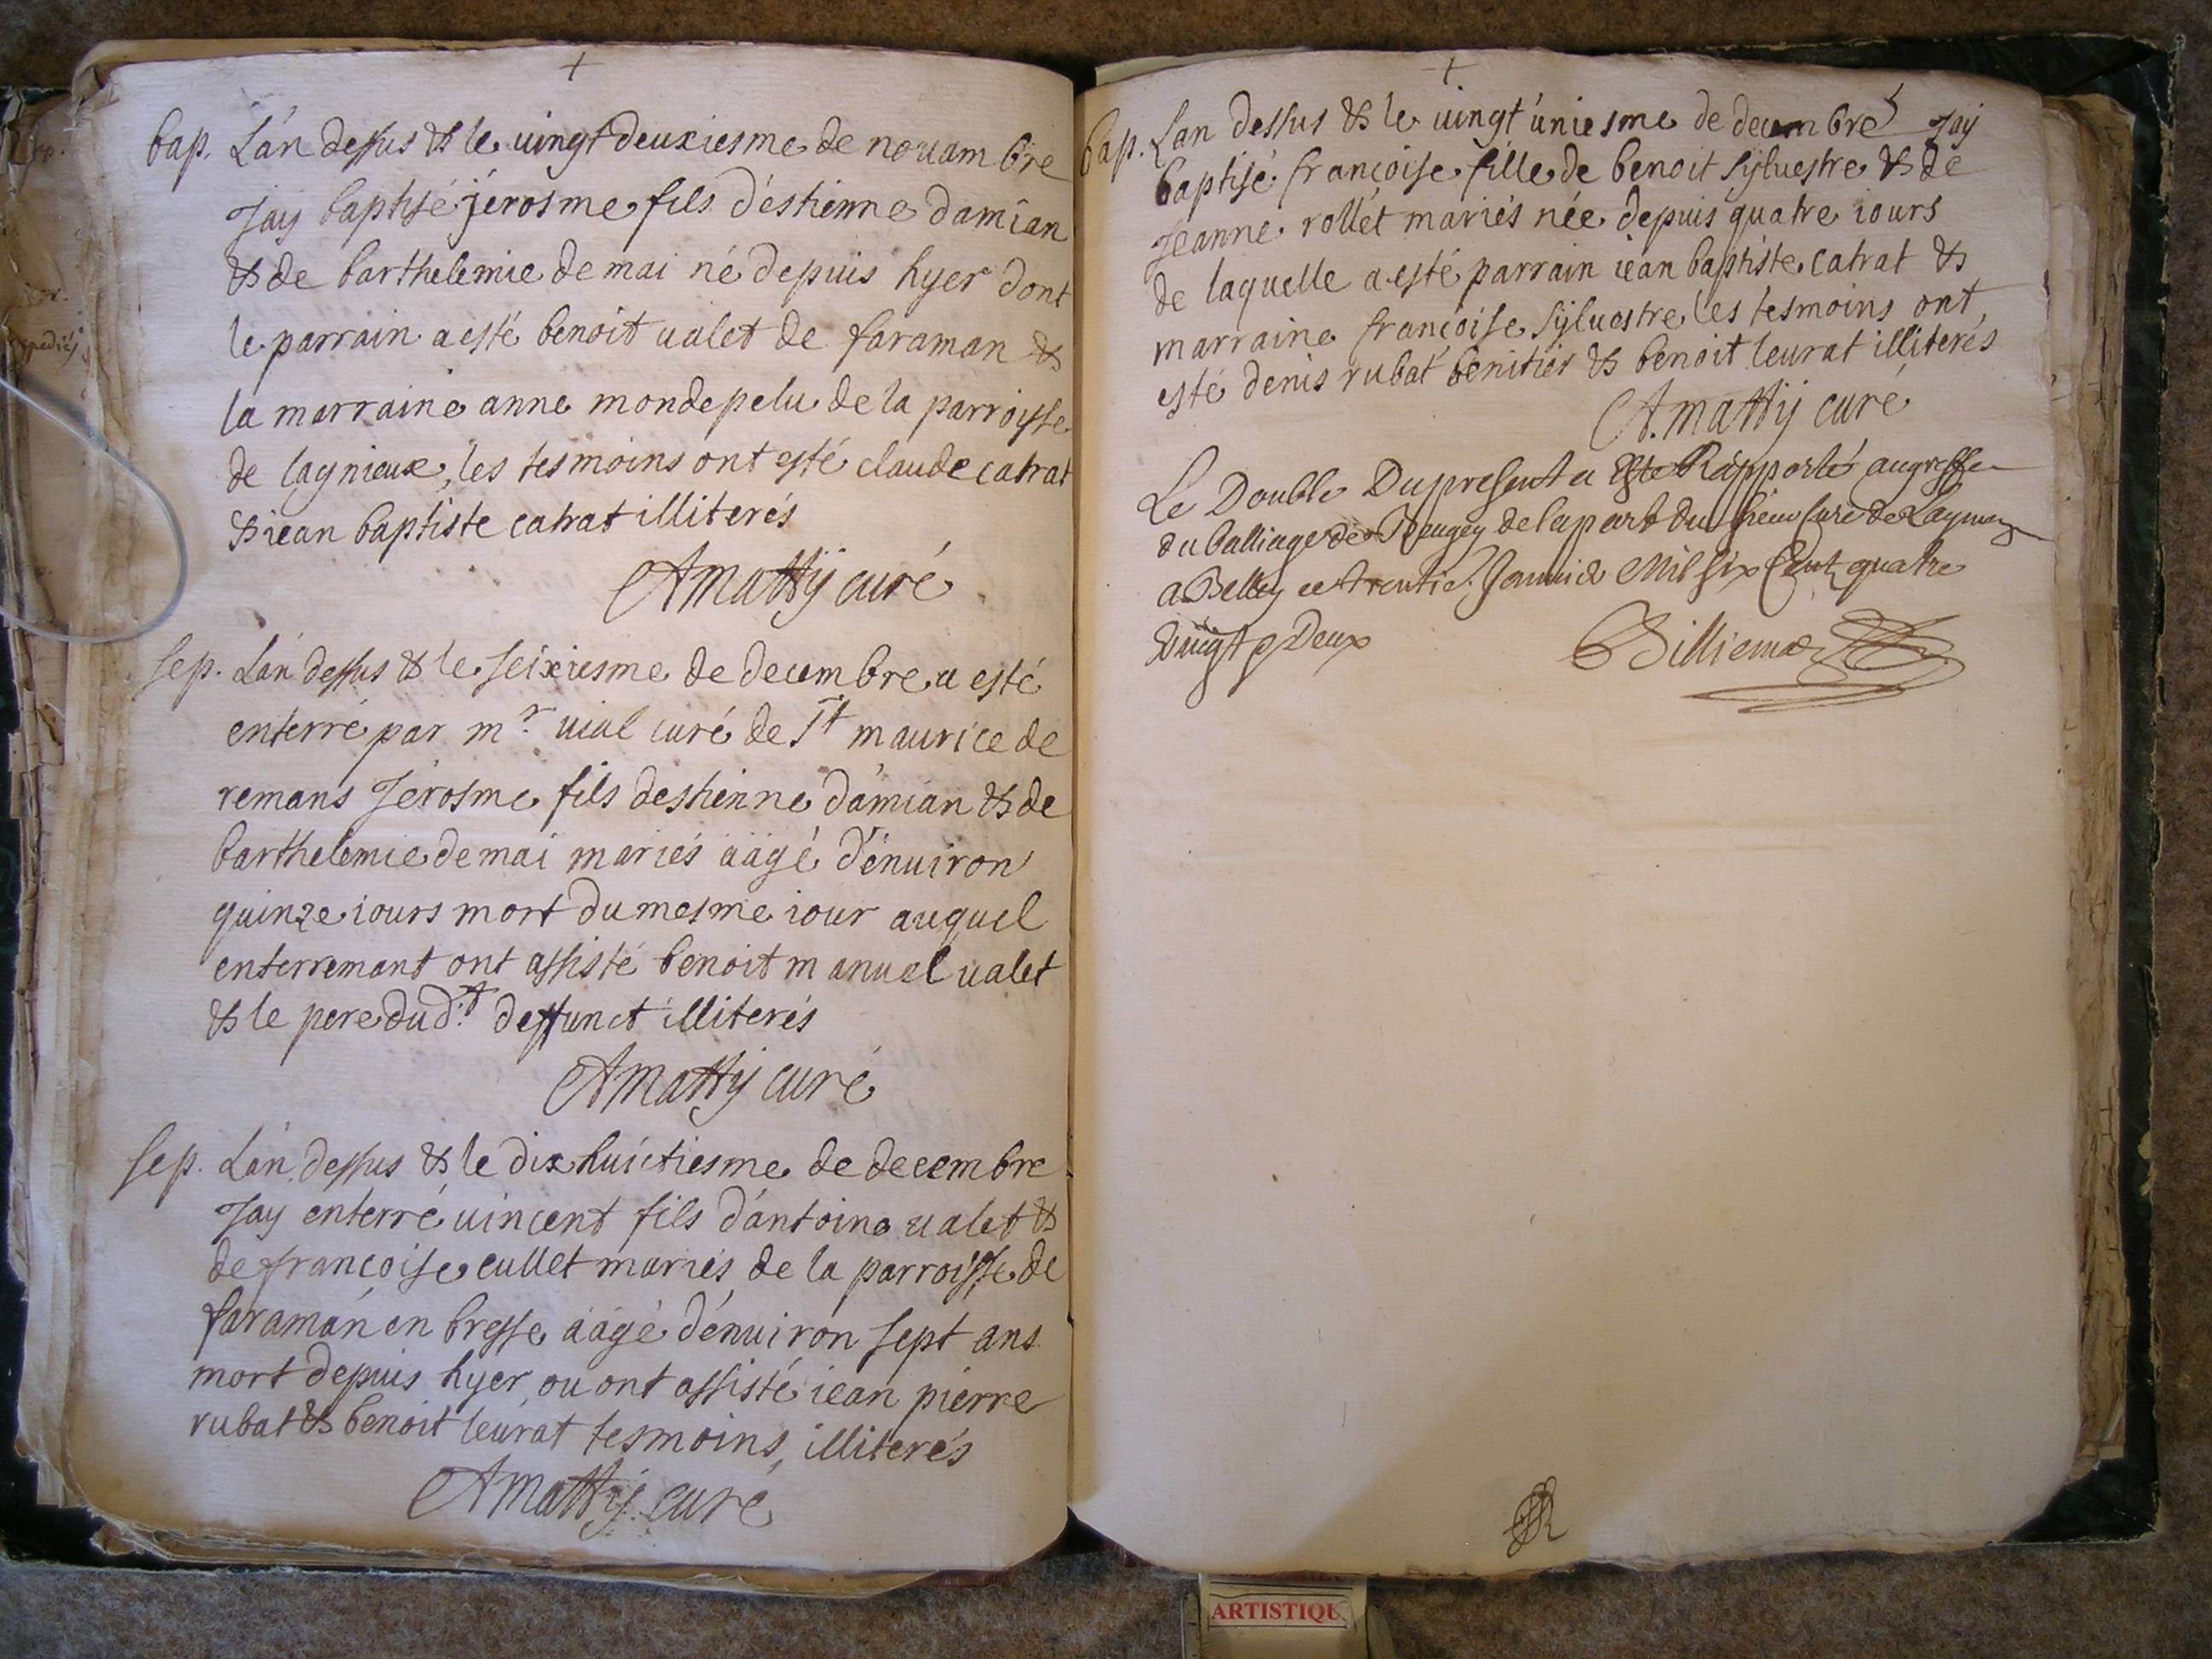 +
bap. L'an dessus & le vingt deuxiesme de nouambre
Jay baptisé jérosme fils d'éstienne damian
& de barthelemie de mai né depuis hyer dont
le parrain a esté benoit ualet de faraman &
la marraine anne mondepelu de la parroisse
de lagnieux, les tesmoins ont esté claude catrat
& iean baptiste catrat illiterés
A Mattÿ curé
sep. L'an dessus & le seixiesme de decembre a esté
enterré par mr. uial curé de St maurice de
remans Jérosme fils destienne damian & de
barthelemie de mai mariés aagé d'enuiron
quinze iours mort du mesme iour auquel
enterremant ont assisté benoit manuel ualet
& le pere dud.t deffunct illiterés
A Mattÿ curé
sep. L'an dessus & le dix huictiesme de decembre
Jay enterré uincent fils d'antoine ualet &
de françoise cullet mariés de la parroisse de
faraman en bresse aagé d'enuiron sept ans
mort depuis hyer, ou ont assisté iean pierre
rubat & benoit leurat tesmoins, illiterés
A Mattÿ curé
+
bap. Lan dessus & le uingt úniesme de decembre Jay
baptisé françoise fille de benoit syluestre & de
Jeanne rollet mariés née depuis quatre iours
de laquelle a esté parrain iean baptiste catrat &
marraine françoise syluestre les tesmoins ont
esté denis rubat & benoit leurat illiterés
A. Mattÿ curé
Le Double Du present a Esté Rapporté au greffe
du balliage de Beugey de la part du sieur Curé de
a Belley ce trentie. Januier Mil six Cent quatre
Vingt & Deux
ARTISTIQU